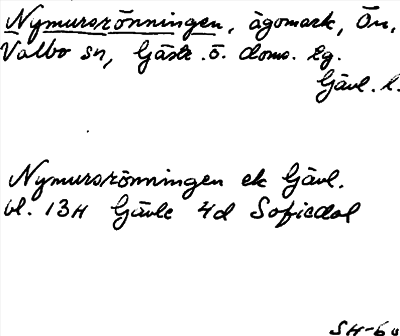 Nymursrönningen, ägomark, Ön,
Valbo sn, Gästr. ö. doms. tg.
Gävl. l.
Nymursrönningen ek Gävl.
bl. 13H Gävle 4d Sofiedal
SH-60